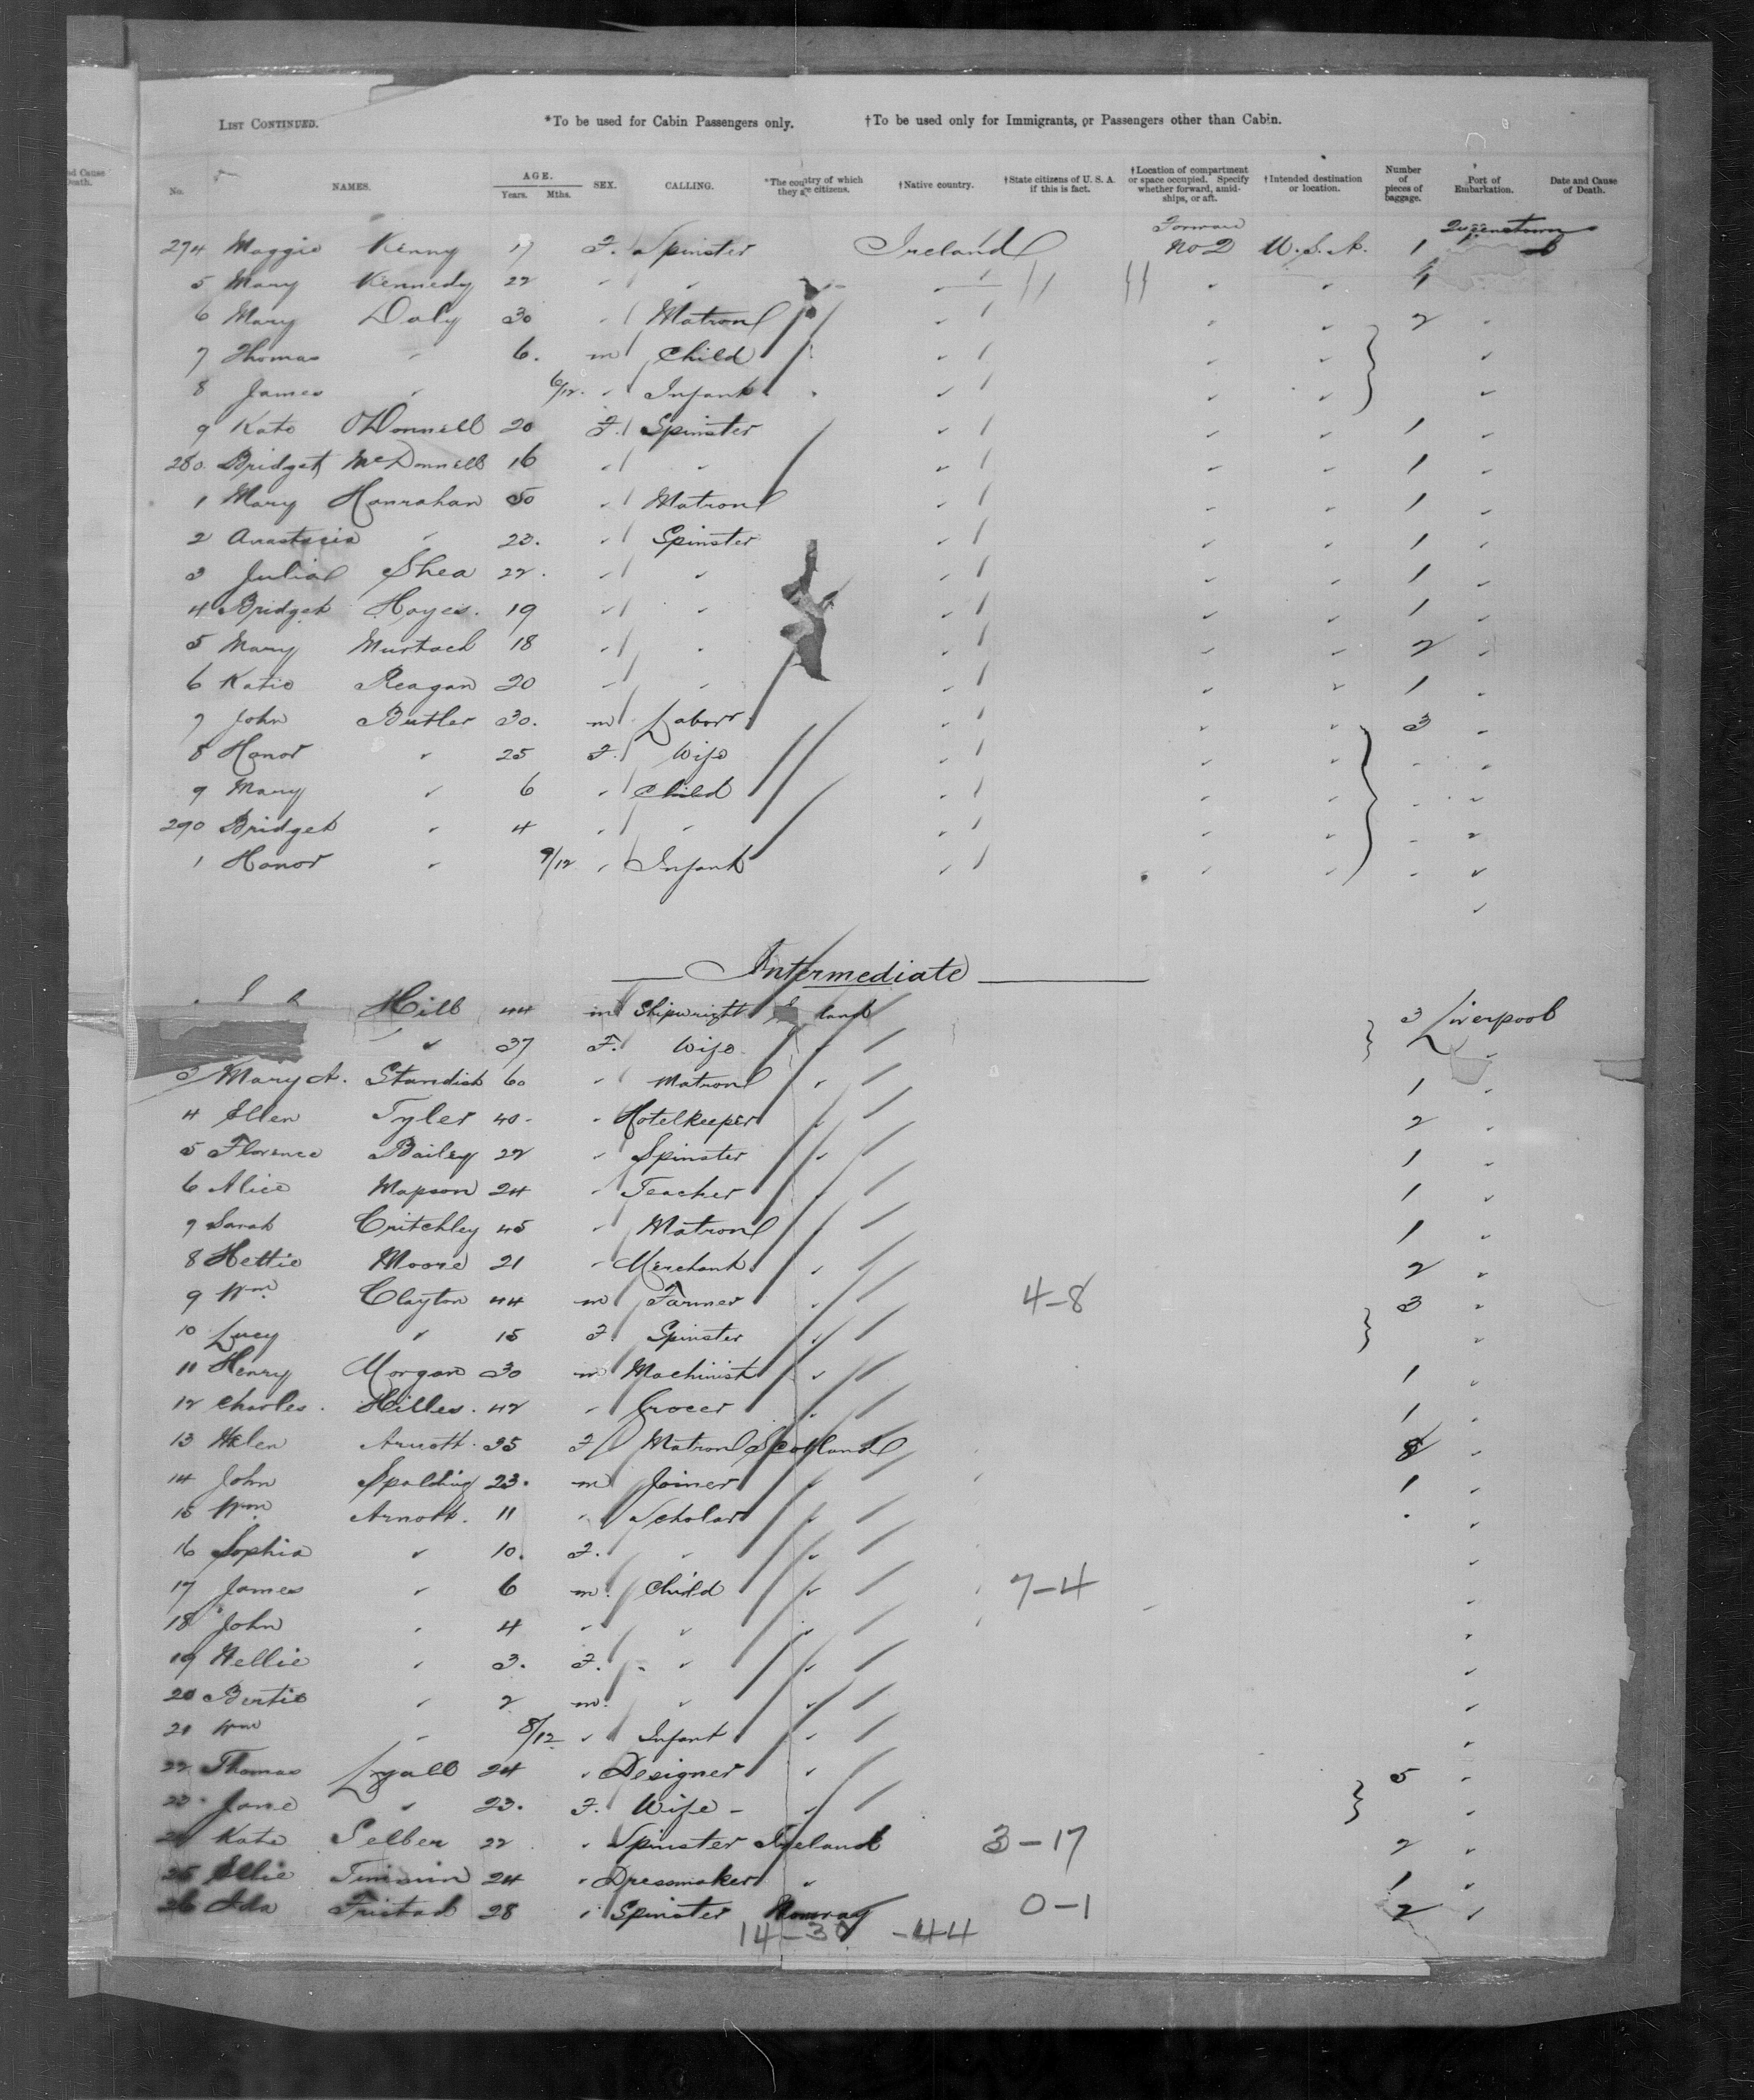 LIST CONTINUED. *To be used for Cabin Passengers only. †To be used only for Immigrants, or Passengers other than Cabin.
ed Cause
Death.
No. NAMES. AGE. Years. Mths. SEX. CALLING. *The country of which they are citizens. †Native country. †State citizens of U. S. A. if this is fact. †Location of compartment or space occupied. Specify whether forward, amidships, or aft. †Intended destination or location. Number of pieces of baggage. Port of Embarkation. Date and Cause of Death.
274 Maggie Kenny 17 F. Spinster Ireland Forward No 2 U.S.A. 1 Queenstown
5 Mary Kennedy 22 " " " " " 1
6 Mary Daly 30 " Matron " " " 2 "
7 Thomas " 6. m Child " " " "
8 James " 6/12. " Infant " " " "
9 Kate O'Donnell 20 F. Spinster " " " 1 "
280 Bridget McDonnell 16 " " " " " 1 "
1 Mary Hanrahan 50 " Matron " " " 1 "
2 Anastasia " 23. " Spinster " " " 1 "
3 Julia Shea 22. " " " " " 1 "
4 Bridget Hayes. 19 " " " " " 1 "
5 Mary Murtach 18 " " " " " 2 "
6 Katie Reagan 20 " " " " " 1 "
7 John Butler 30. m Labors " " " 3 "
8 Honor " 25 F. Wife " " " " "
9 Mary " 6 " Child " " " " "
290 Bridget " 4 " " " " " " "
1 Honor " 9/12 " Infant " " " " "
"
Intermediate
Hill 44 m Shipwright land 3 Liverpool
" 37 F. Wife " "
3 Mary A. Standish 60 " Matron " 1 "
4 Ellen Tyler 40 " Hotelkeeper " 2 "
5 Florence Bailey 22 " Spinster " 1 "
6 Alice Mapson 24 " Teacher " 1 "
7 Sarah Critchley 45 " Matron " 1 "
8 Hettie Moore 21 " Merchant " 2 "
9 Wm Clayton 44 m Farmer " 4-8 3 "
10 Lucy " 15 F. Spinster " "
11 Henry Morgan 30 m Machinist " 1 "
12 Charles Hilles. 42 " Grocer " 1 "
13 Helen Arnott. 35 F Matron Scotland 8 "
14 John Spalding 23. m Joiner " 1 "
15 Wm Arnott. 11 " Scholar " "
16 Sophia " 10. F. " " "
17 James " 6 m. Child " 7-4 "
18 John " 4 " " " "
19 Nellie " 3. F. " " "
20 Bertie " 2 m. " " "
21 Wm " 8/12 " Infant " "
22 Thomas Lyall 24 " Designer " 5 "
23 Jane " 23. F. Wife " "
24 Kate 22 " Spinster Ireland 3-17 2 "
25 Ellie 24 " Dressmaker " 1 "
26 Ida 28 " Spinster Norway 0-1 2 "
14-30 -44